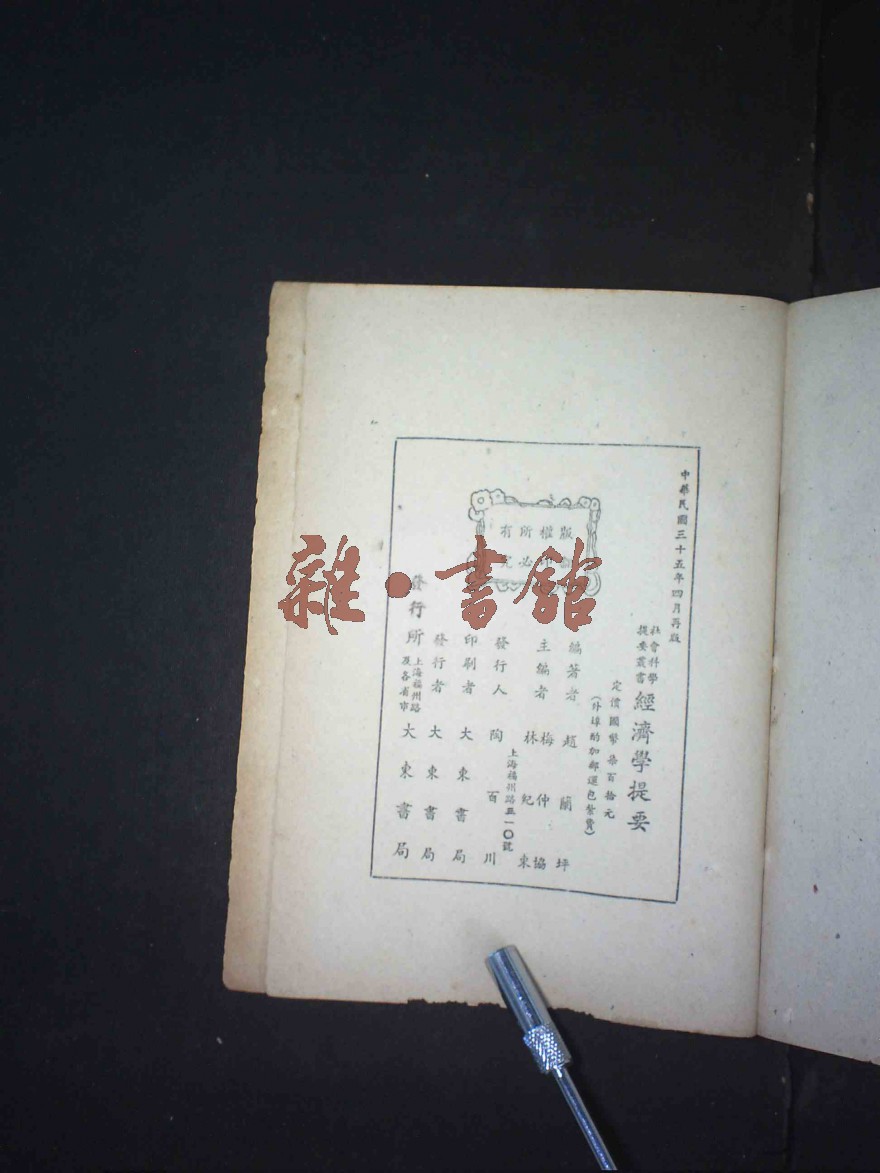 中華民國三十五年四月再版
社會科學
提要叢書
經濟學提要
定價國幣柒百拾元
(外埠酌加郵運包紮費)
版權所有
印必究
編著者 趙蘭坪
主編者 梅仲協
林紀東
上海福州路三一〇號
發行人 陶百川
印刷者 大東書局
發行者 大東書局
發行所 上海福州路
及各省市
大東書局
雜·書館